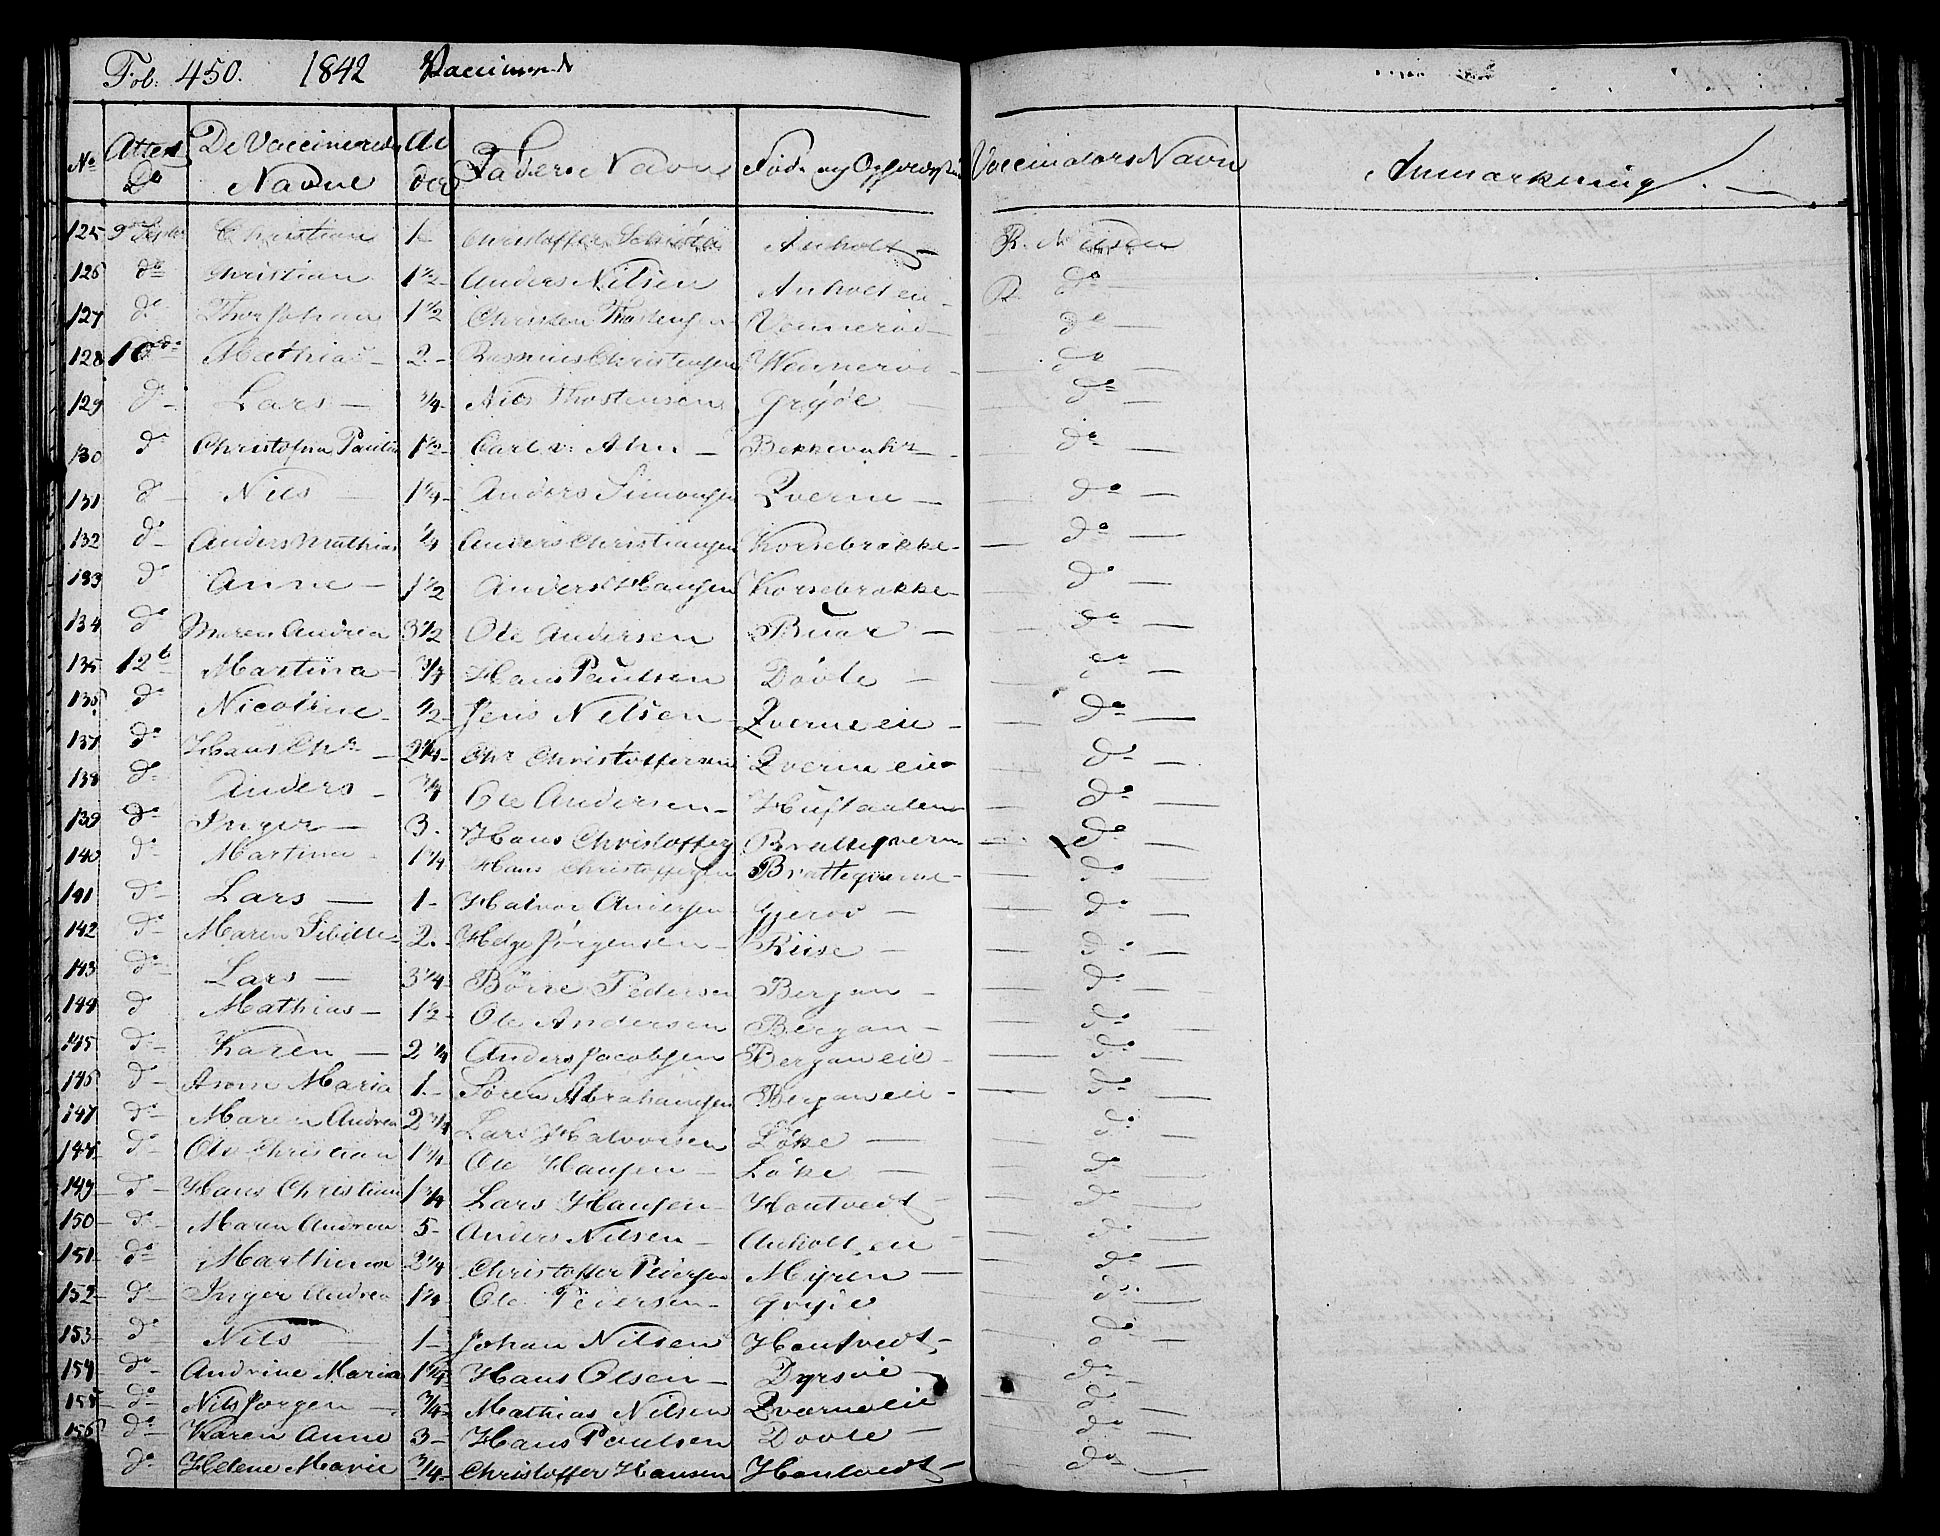 Fol: 450. 1842 Vaccinerede
No Attest Do De Vaccineredes Navne Alder Faders Navn Føde og Opholdssted Vaccinators Navn Anmærkning
125 9de Septbr Christian 1 Christoffer Anholt R. Nilsen
126 do Christian 1 1/2 Anders Nilsen Anholt eie do
127 do Thor Johan 1 1/2 Christen Thostensen Vennerød do
128 10de do Mathias 2 Rasmus Christensen Wennerød do
129 do Lars 3/4 Nils Thostensen Gryde do
130 do Christofna Pauline 1 1/2 Carl v: Ahn Bekkevahr do
131 do Nils 1 1/4 Anders Simonsen Qverne do
132 do Anders Mathias 1/4 Anders Christiansen Korsebrække do
133 do Anne 1 1/2 Anders Hansen Korsebrække do
134 do Maren Andrea 3 1/2 Ole Andersen Buar do
135 12te Martina 3/4 Hans Paulsen Døvle do
136 do Nicoline 1/2 Jens Nilsen Qverne eie do
137 do Hans Chr 2 1/4 Chr Christoffersen Qverne eie do
138 do Anders 3/4 Ole Andersen do
139 do Inger 3 Hans Christoffers Bratteqvern do
140 do Martine 1 1/4 Hans Christoffersen Bratteqverne do
141 do Lars 1 Halvor Andersen Gjerøv do
142 do Maren Sibille 2 Helge Jørgensen Riise do
143 do Lars 3 1/4 Børre Pedersen Bergan do
144 do Mathias 1 1/2 Ole Andersen Bergan do
145 do Karen 2 1/4 Anders Jacobsen Bergan eie do
146 do Anne Maria 1 Søren Abrahamsen Bergan eie do
147 do Maren Andrea 2 3/4 Lars Halvorsen Løke do
148 do Ole Christian 1 1/4 Ole Hansen Løke do
149 do Hans Christian 1 3/4 Lars Hansen Hontvedt do
150 do Maren Andrea 5 Anders Nilsen Anholt eie do
151 do Marthine 2 1/4 Christoffer Pedersen Myren do
152 do Inger Andrea 1 1/4 Ole Pedersen Gryde do
153 do Nils 1 Johan Nilsen Hontvedt do
154 do Andrine Maria 1 1/4 Hans Olsen Dyrsøe do
155 do Nils Jørgen 3/4 Mathias Nilsen Qverne eie do
156 do Karen Anne 3 Hans Poulsen Døvle do
do Helene Marie 3/4 Christoffer Hansen Hontvedt do